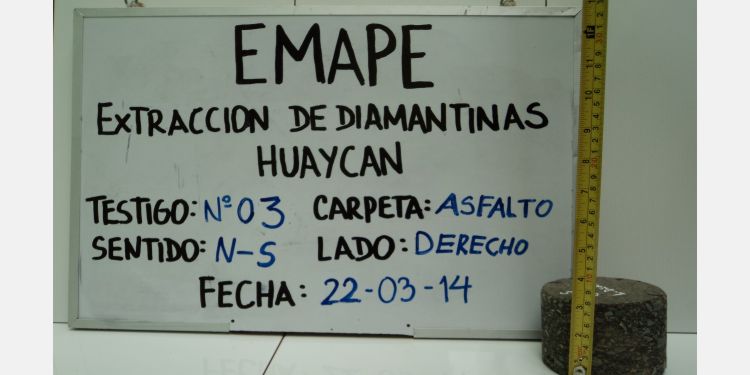 EMAPE
EXTRACCION DE DIAMANTINAS
HUAYCAN
TESTIGO: Nº 03 CARPETA: ASFALTO
SENTIDO: N-S LADO: DERECHO
FECHA: 22-03-14